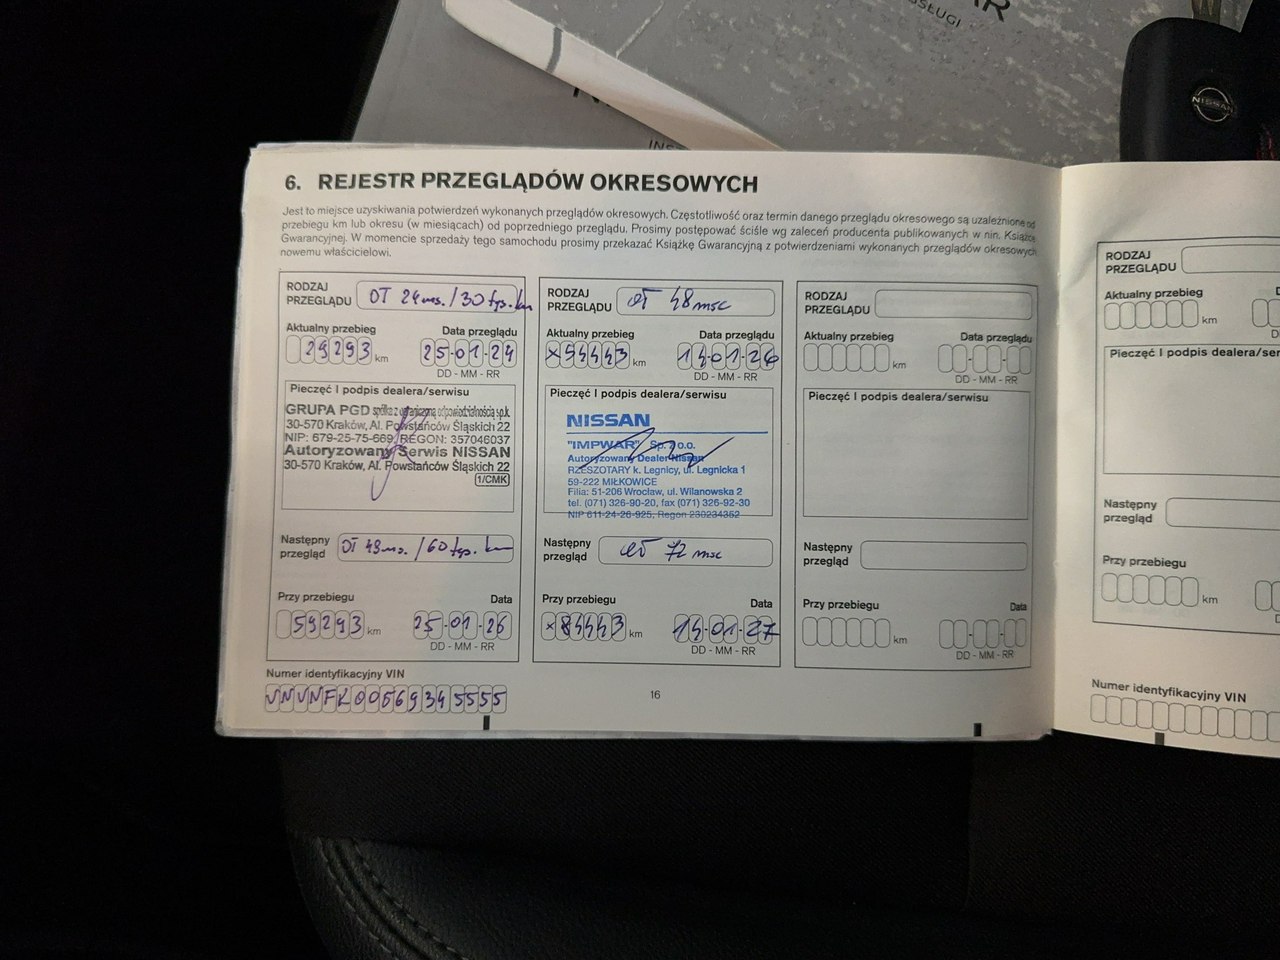 OBSŁUGI
NISSAN
6. REJESTR PRZEGLĄDÓW OKRESOWYCH
Jest to miejsce uzyskiwania potwierdzeń wykonanych przeglądów okresowych. Częstotliwość oraz termin danego przeglądu okresowego są uzależnione od
przebiegu km lub okresu (w miesiącach) od poprzedniego przeglądu. Prosimy postępować ściśle wg zaleceń producenta publikowanych w nin. Książce
Gwarancyjnej. W momencie sprzedaży tego samochodu prosimy przekazać Książkę Gwarancyjną z potwierdzeniami wykonanych przeglądów okresowych
nowemu właścicielowi.
RODZAJ
PRZEGLĄDU OT 24 ms. / 30 tys. km
Aktualny przebieg Data przeglądu
29293 km 25-01-24
DD - MM - RR
Pieczęć I podpis dealera/serwisu
GRUPA PGD spółka z ograniczoną odpowiedzialnością sp.k.
30-570 Kraków, Al. Powstańców Śląskich 22
NIP: 679-25-75-669, REGON: 357046037
Autoryzowany Serwis NISSAN
30-570 Kraków, Al. Powstańców Śląskich 22
1/CMK
Następny
przegląd OT 48 ms. / 60 tys. km
Przy przebiegu Data
59293 km 25-01-26
DD - MM - RR
Numer identyfikacyjny VIN
RODZAJ
PRZEGLĄDU OT 48 msc
Aktualny przebieg Data przeglądu
x54443 km 14-01-26
DD - MM - RR
Pieczęć I podpis dealera/serwisu
NISSAN
"IMPWAR" Sp. z o.o.
Autoryzowany Dealer Nissan
RZESZOTARY k. Legnicy, ul. Legnicka 1
59-222 MIŁKOWICE
Filia: 51-206 Wrocław, ul. Wilanowska 2
tel. (071) 326-90-20, fax (071) 326-92-30
NIP 611-24-26-925, Regon 230234352
Następny
przegląd OT 72 msc
Przy przebiegu Data
x84443 km 14-01-27
DD - MM - RR
RODZAJ
PRZEGLĄDU
Aktualny przebieg Data przeglądu
km
DD - MM - RR
Pieczęć I podpis dealera/serwisu
Następny
przegląd
Przy przebiegu Data
km
DD - MM - RR
16
RODZAJ
PRZEGLĄDU
Aktualny przebieg
km
Pieczęć I podpis
Następny
przegląd
Przy przebiegu
km
Numer identyfikacyjny VIN